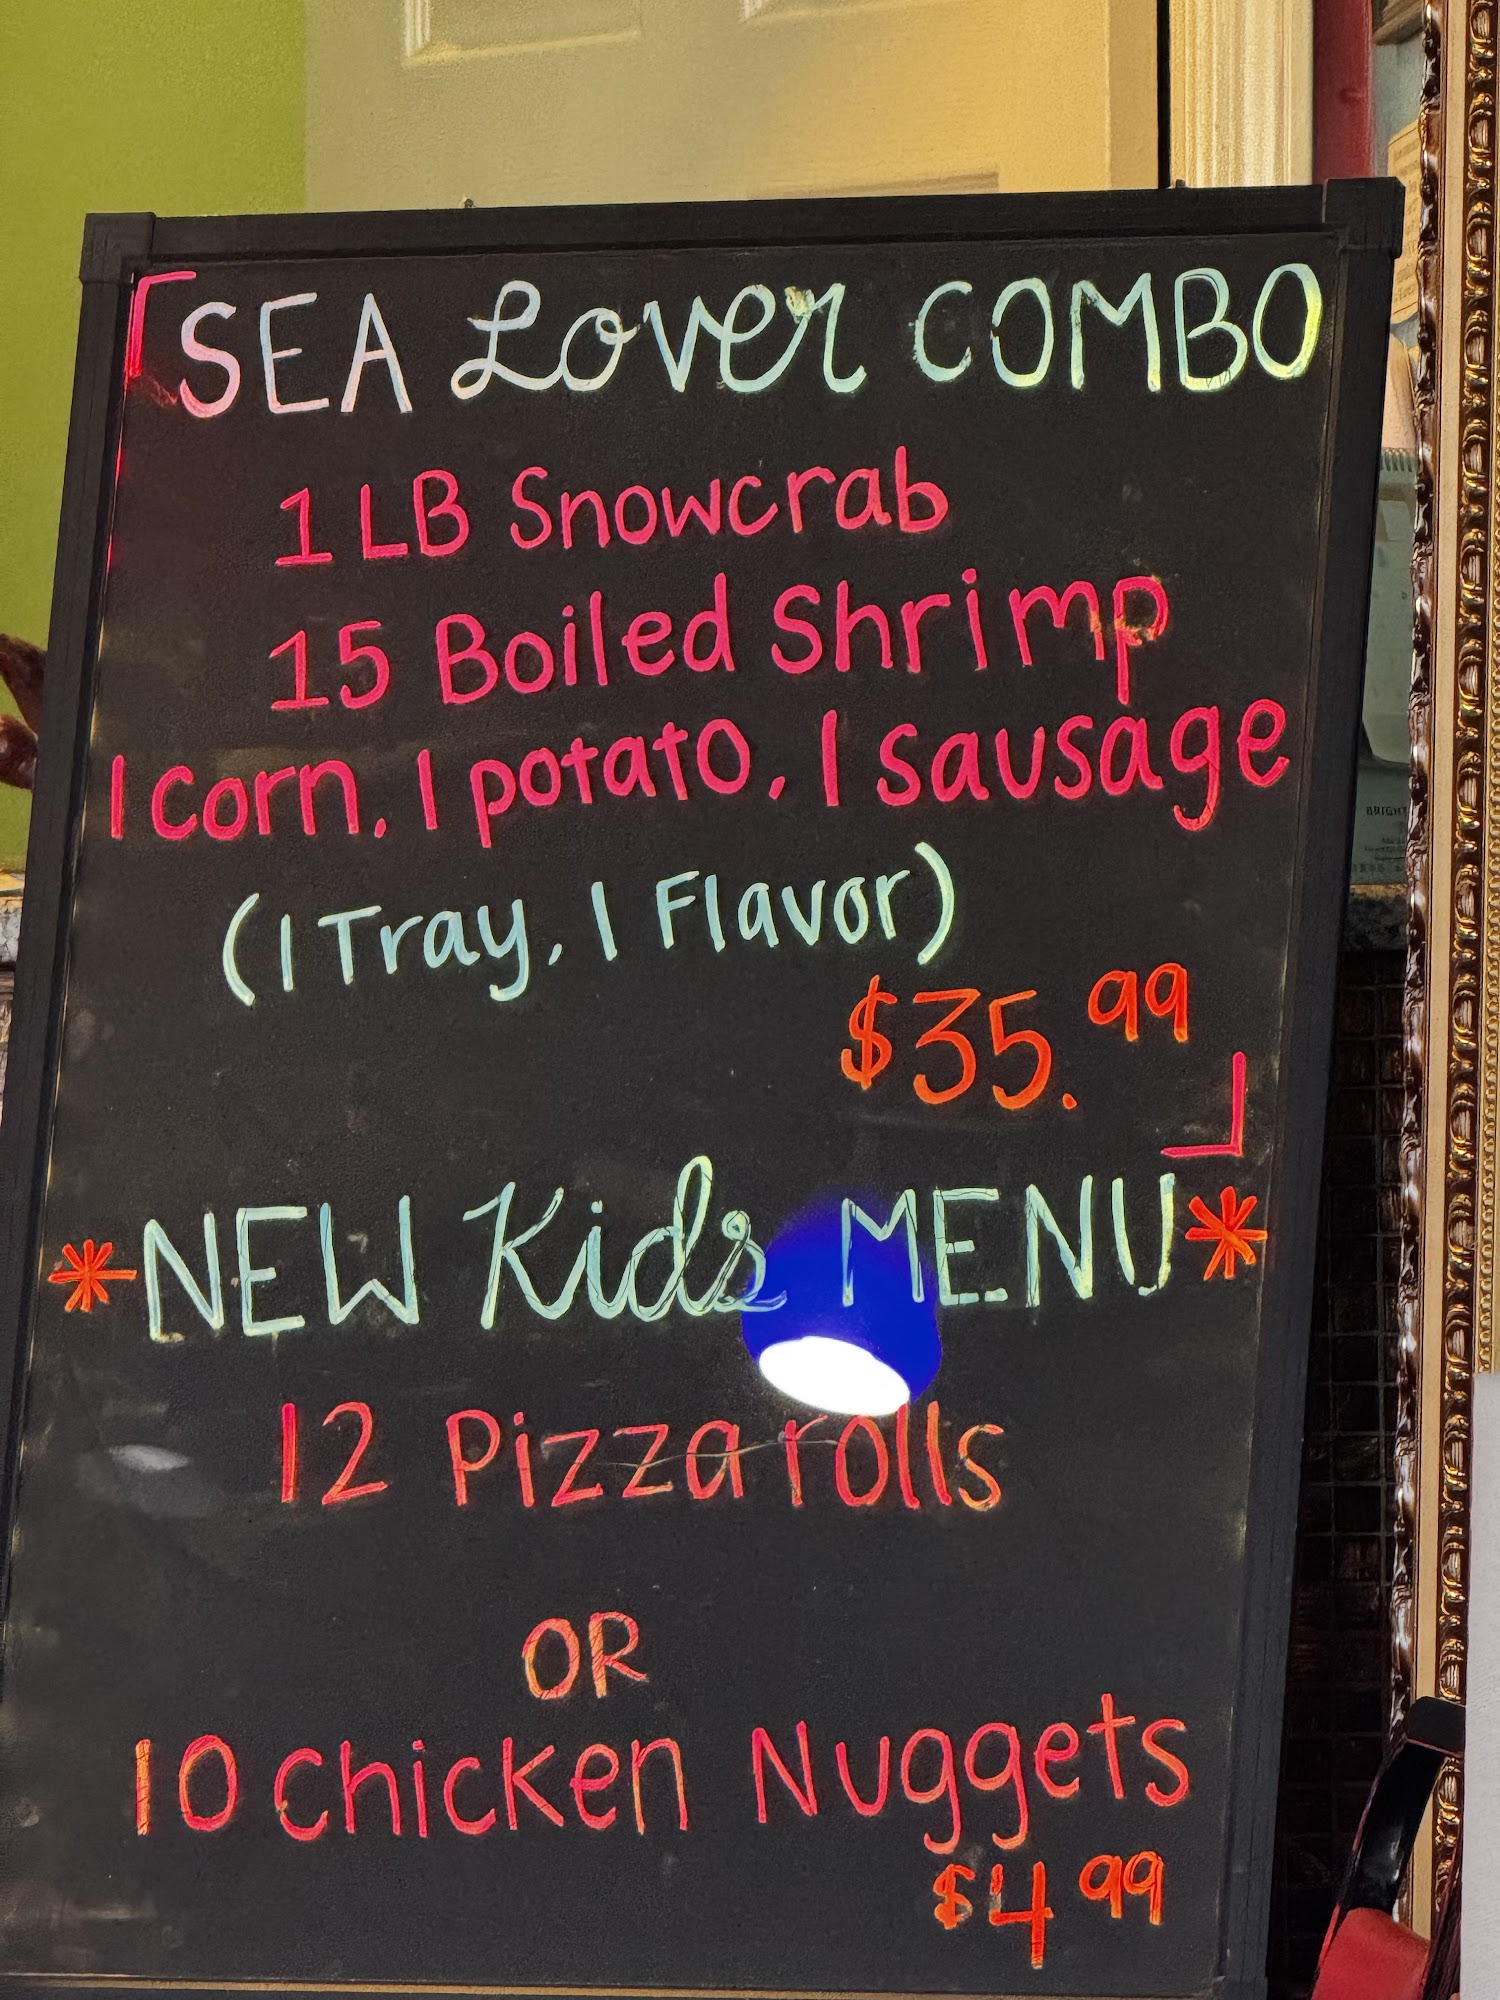 SEA Lover COMBO
1 LB Snowcrab
15 Boiled Shrimp
1 corn, 1 potato, 1 sausage
(1 Tray, 1 Flavor)
$35.99
*NEW Kids MENU*
12 Pizza rolls
OR
10 Chicken Nuggets
$4 99
BRIGHT